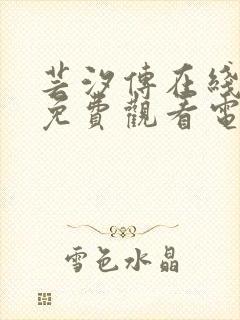 芸汐傳在綫
免費觀看電
雪色水晶